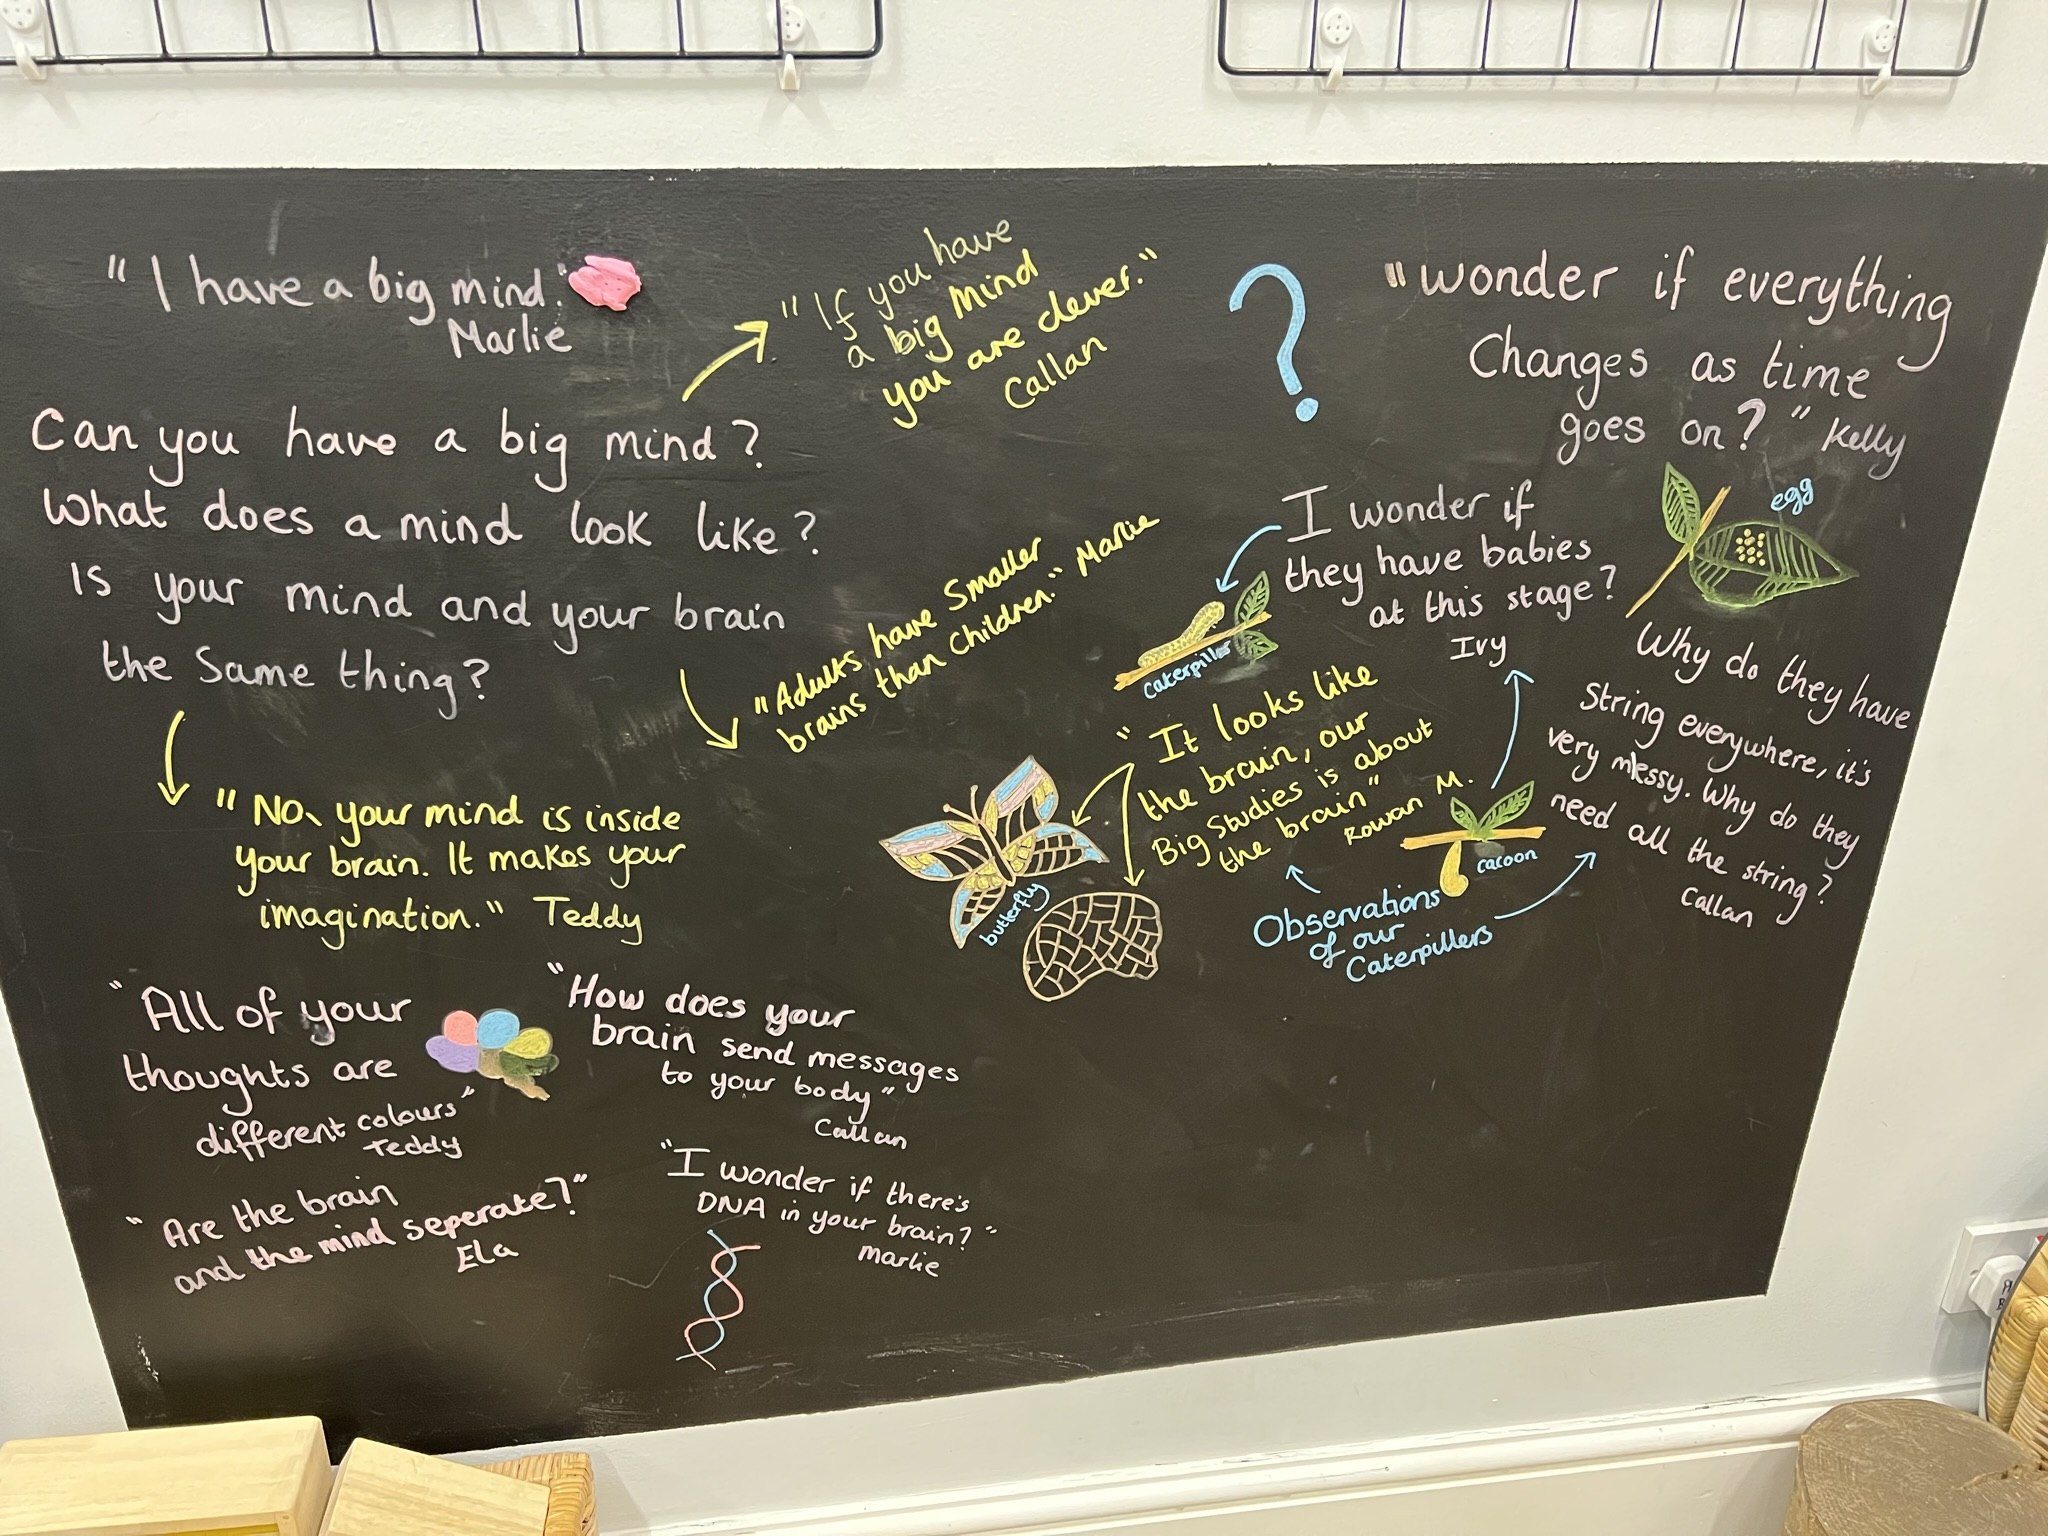 "I have a big mind."
Marlie
"If you have
a big mind
you are clever."
Callan
Can you have a big mind?
What does a mind look like?
Is your mind and your brain
the same thing?
"Adults have smaller
brains than children." Marlie
"No, your mind is inside
your brain. It makes your
imagination." Teddy
"All of your
thoughts are
different colours"
Teddy
"How does your
brain send messages
to your body"
Callan
"Are the brain
and the mind seperate?"
Ela
"I wonder if there's
DNA in your brain?"
Marlie
?
"wonder if everything
Changes as time
goes on?" Kelly
egg
I wonder if
they have babies
at this stage?
Ivy
caterpiller
"It looks like
the brain, our
Big Studies is about
the brain"
Rowan M.
butterfly
Why do they have
String everywhere, it's
very messy. Why do they
need all the string?
Callan
cacoon
Observations
of our
Caterpillers